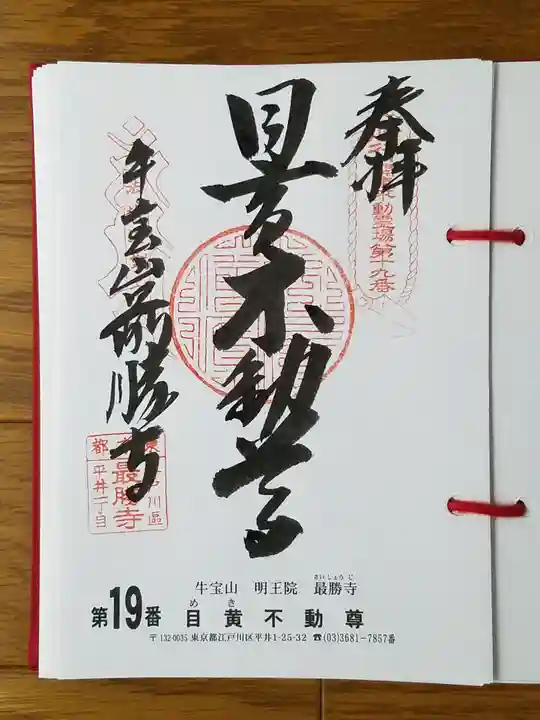 奉拝
動霊場第十九番
目黄不動尊
牛宝山最勝寺
東
川區
都
最勝寺
平井一丁目
牛宝山 明王院 最勝寺
さいしょうじ
第19番 目黄不動尊
めき
〒132-0035 東京都江戸川区平井1-25-32 ☎(03)3681-7857番